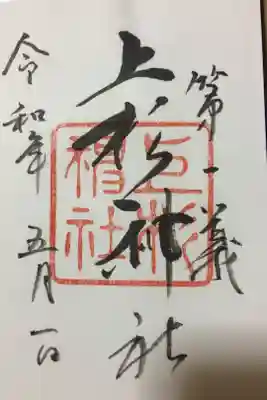 第一義
上杉神社
上杉神社
令和元年五月一日